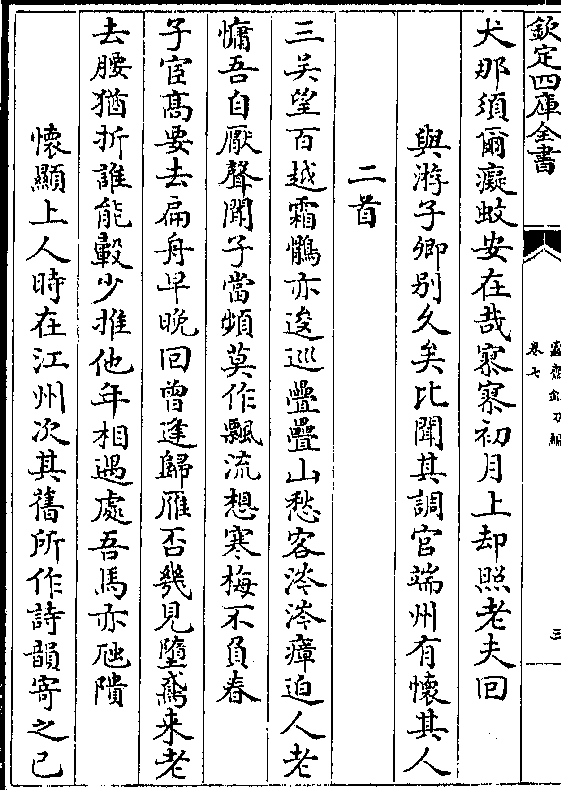 欽定四庫全書
蠹齋鉛刀編
卷七
三
犬那須爾癡蚊安在哉寥寥初月上却照老夫回
與游子卿別久矣比聞其調官端州有懷其人
二首
三吳望百越霜鶻亦逡巡疊疊山愁客涔涔瘴迫人老
慵吾自厭聲聞子當頻莫作飄流想寒梅不負春
子宦髙要去扁舟早晚回曾逢歸雁否幾見墮鳶来老
去腰猶折誰能轂少推他年相遇處吾馬亦虺隤
懷顯上人時在江州次其舊所作詩韻寄之已